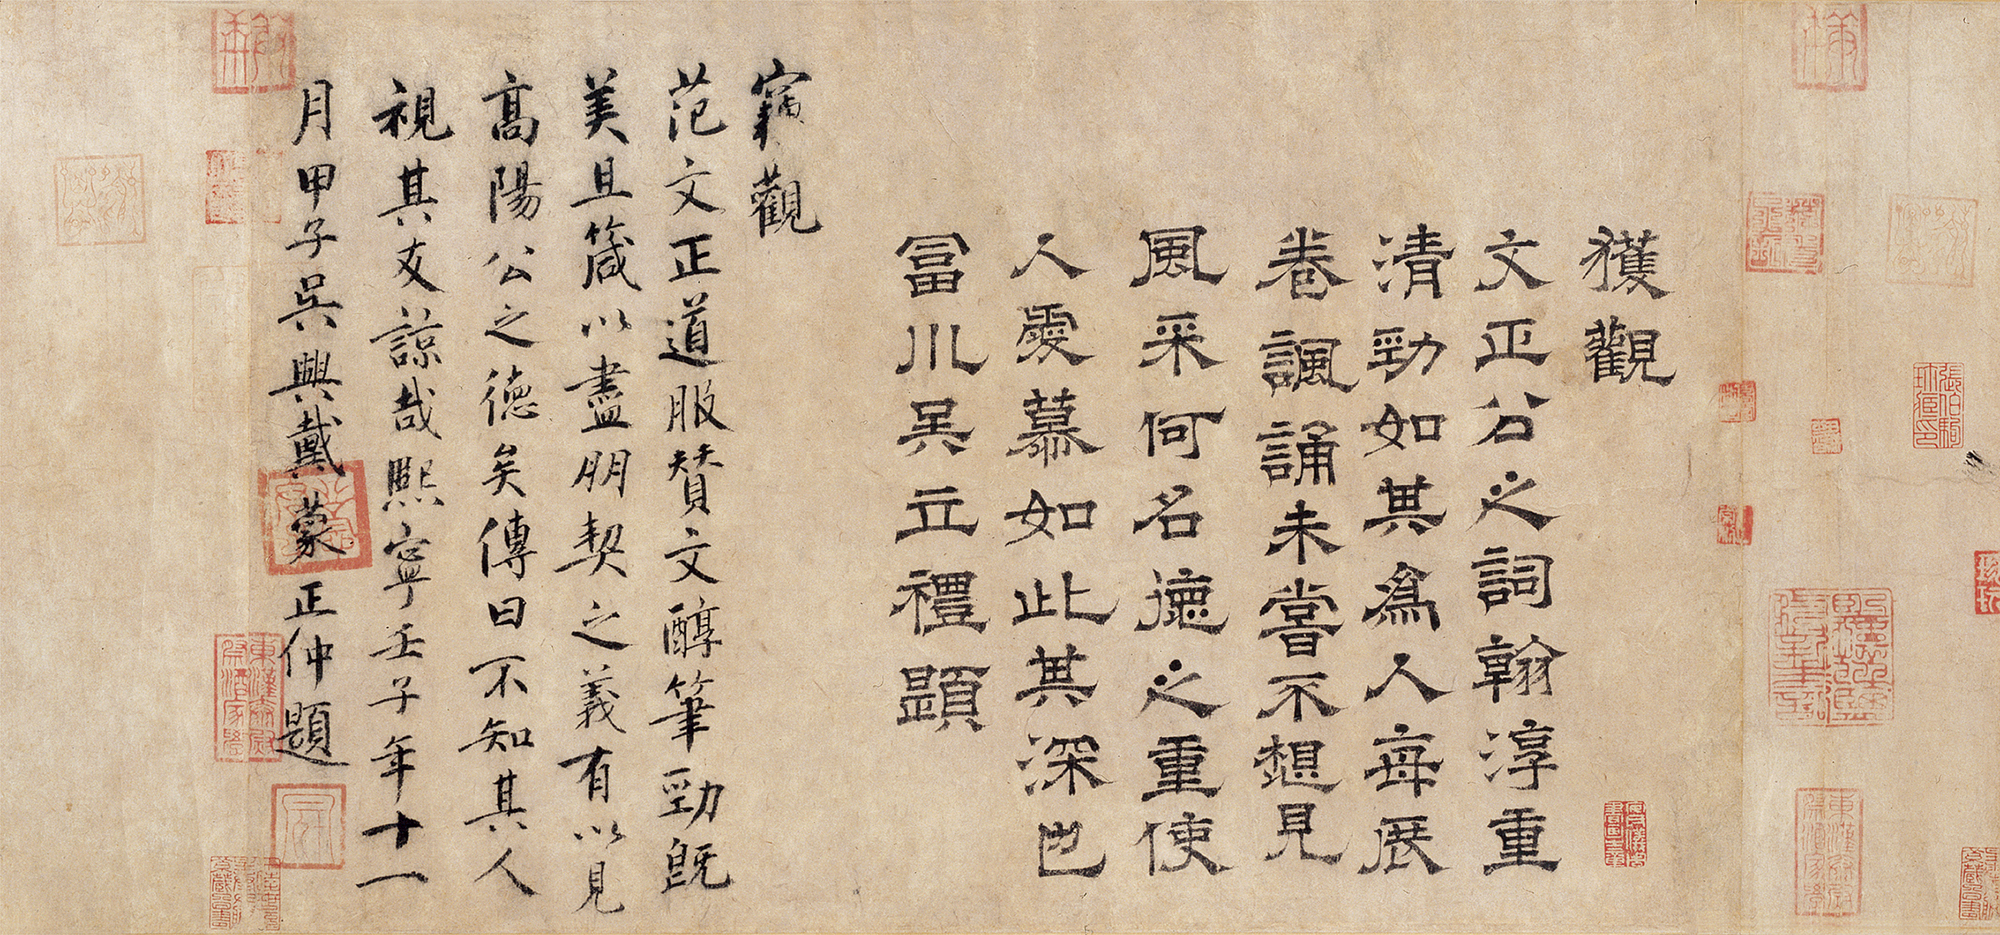 獲觀
文正公之詞翰淳重
清勁如其爲人每展
卷諷誦未嘗不想見
風采何名德之重使
人愛慕如此其深也
冨川吴立禮題
竊觀
范文正道服賛文醇筆勁旣
美且箴以盡朋契之義有以見
髙陽公之德矣傳曰不知其人
視其友諒哉熙寧壬子年十一
月甲子吴興戴蒙正仲題
張伯駒
珍藏印